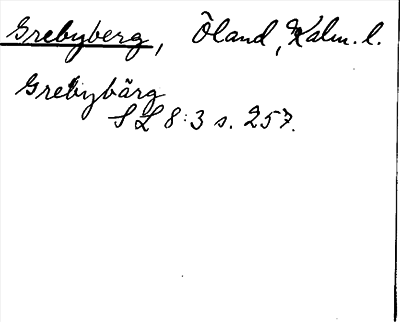 Grebyberg, Öland, Kalm. l.
Grebybärg
SL 8:3 s. 257.